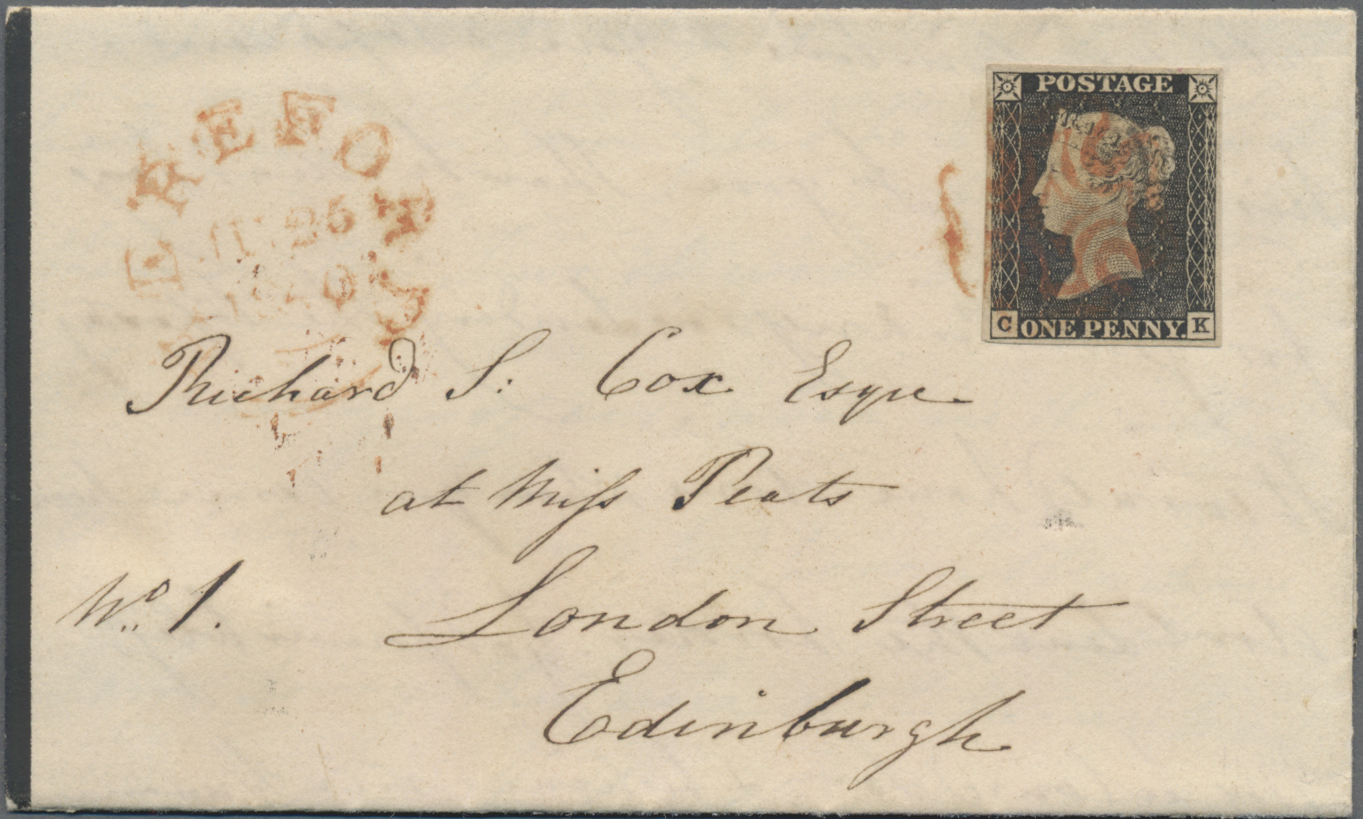 HEREFORD
26
1840
POSTAGE
C ONE PENNY. K
Richard S: Cox Esqre
at Miss Peats
No. 1. London Street
Edinburgh